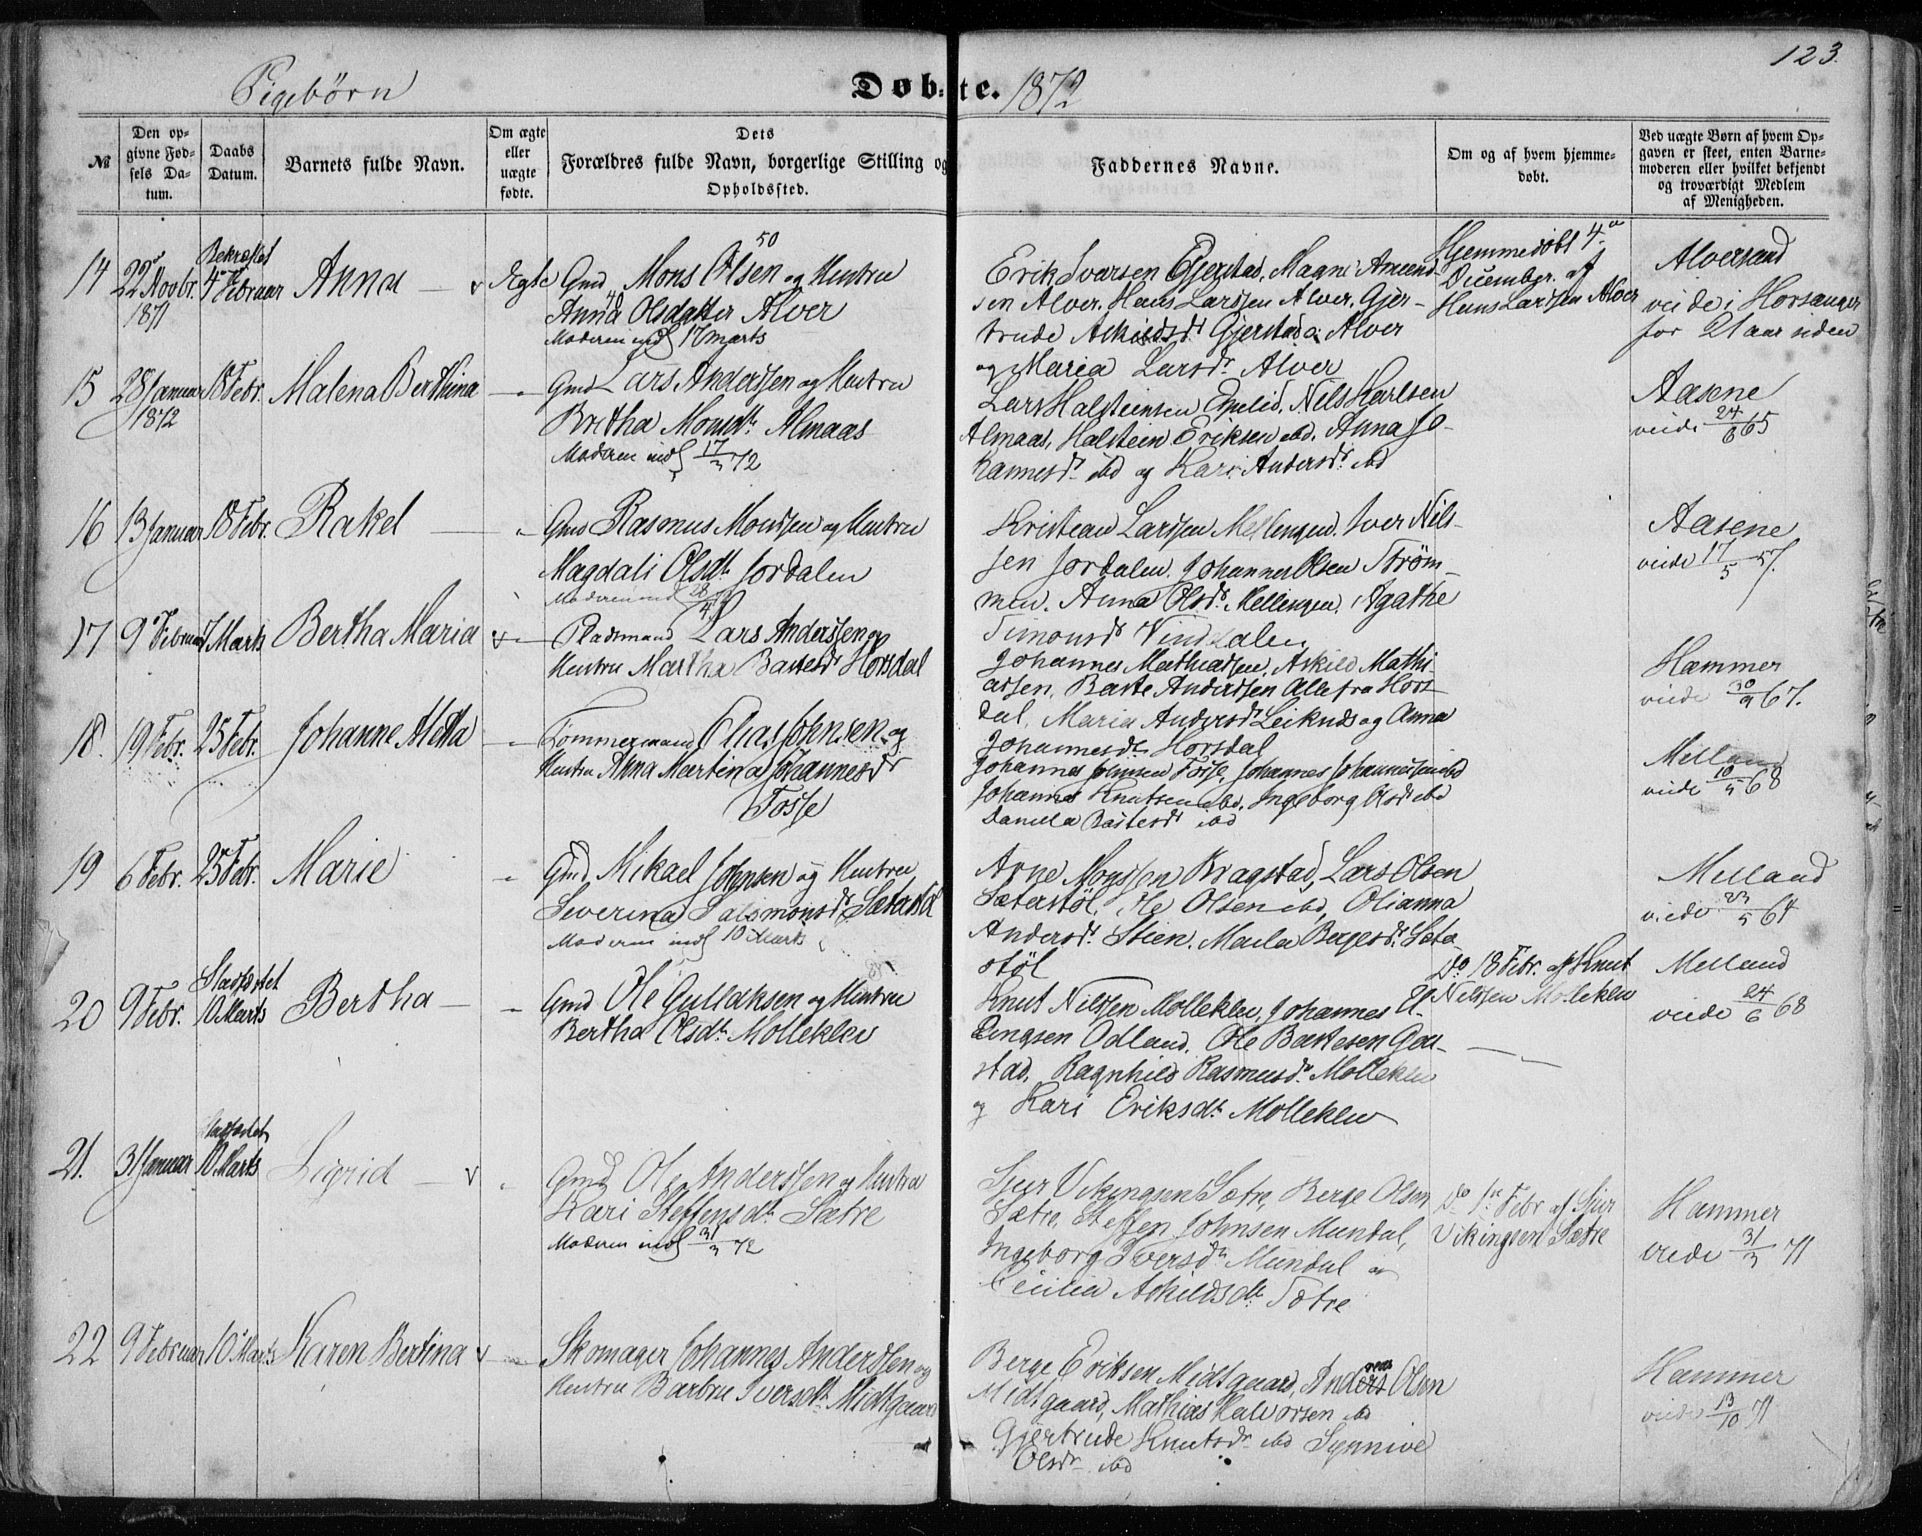 123.
Pigebørn
Døb-te. 1872
№
Den op-
givne Fød-
sels Da-
tum.
Daabs
Datum.
Barnets fulde Navn.
Om ægte
eller
uægte
fødte.
Dets
Forældres fulde Navn, borgerlige Stilling og
Opholdssted.
Faddernes Navne.
Om og af hvem hjemme-
døbt.
Ved uægte Børn af hvem Op-
gaven er skeet, enten Barne-
moderen eller hvilket bekjendt
og troværdigt Medlem
af Menigheden.
14
22 Novbr.
1871
Bekræftet
4 Februar
Anna
Ægte
50
Gmd Mons Olsen og Hustru
Anna Olsdatter Alver
Moderen indl 17 marts
Erik Ivarsen Gjerstad, Magni Amund-
sen Alver, Hans Larssen Alver, Gjer-
trude Askildsdr Gjerstad, Alver
og Maria Larsdr Alver
Hjemmedøbt 4de
December af
Hans Larssen Alver
Alversund
viede i Hosanger
for 21 aar siden
15
28 Januar
1872
18 Febr.
Malena Berthina
Gmd Lars Anderssen og Hustru
Britha Monsdtr Almaas
Moderen indl 17/3 72
Lars Halsteinsen Epelid, Nils Karlsen
Almaas, Halstein Eriksen ibd. Anna Jo-
hannesdr ibd og Kari Andersdr ibd
Aasene
viede 24/6 65
16
13 Januar
18 Febr.
Rakel
Gmd Rasmus Monssen og Hustru
Magdali Olsdtr Jordalen
Moderen indl 28/4
Kristian Larssen Mellingen, Iver Nils-
sen Jordalen, Johannes Olsen Strøm-
men, Anna Olsdr Mellingen, Agathe
Simonsdr Vindalen
Aasene
viede 17/5 57.
17
9 Februar
7 Marts
Bertha Maria
Pladsmand Lars Anderssen og
Hustru Martha Bastesdr Horsdal
Johannes Mathiassen, Askild Mathi-
assen, Baste Anderssen Alle fra Hors-
dal, Maria Andersdr Leiknes og Anna
Johannesdr Horsdal
Hammer
viede 30/9 67.
18.
19 Febr.
25 Febr.
Johanne Metta
Tømmermand Elias Johnsen og
Hustru Anna Martina Johannesdr
Fosse
Johannes Johnsen Fosse, Johannes Johannessen ibd
Johannes Knutsen ibd. Ingeborg Olsdr ibd
Daniela Bastesdr ibd
Melland
viede 10/5 68
19
6 Febr.
25 Febr.
Marie
Gmd Mikael Johnsen og Hustru
Severina Salomonsdr Sæterstøl
Moderen indl 10 Marts
Arne Monssen Kragstad, Lars Olsen
Sæterstøl, Ole Olsen ibd, Olianna
Andersdr Stien, Marta Bergesdr Sæter-
støl
Melland
viede 23/5 64
20
9 Febr.
Stadfæstet
10 Marts
Bertha
Gmd Ole Gullaksen og Hustru
Bertha Olsdtr Molleklev
Knut Nilssen Molleklev, Johannes El-
lingsen Odland, Ole Bastesen Gau-
stad, Ragnhild Rasmusdr Molleklev
og Kari Eriksdtr Molleklev
Do 18 Febr. af Knut
Nilssen Molleklev
Melland
viede 24/6 68
21.
31 Januar
Stadfæstet
10 Marts
Sigrid
Gmd Ole Anderssen og Hustru
Kari Steffensdtr Sætre
Moderen indl 31/3 72
Sjur Vikingsen Sætre, Berge Olsen
Sætre, Steffen Johnsen Mundal,
Ingeborg Iversdr Mundal og
Cecilia Askildsdtr Sætre
Do 1ste Febr af Sjur
Vikingsen Sætre
Hammer
viede 31/3 71
22
9 Februar
10 Marts
Karen Bertina
Skomager Johannes Anderssen og
Hustru Barbru Iversdtr Midtgaard
Berge Eriksen Midtgaard, Anders Olsen
Midtgaard, Mathias Halvorsen ibd
Gjertrude Knutsdr ibd Synnive
Olsdr ibd
Hammer
viede 13/10 71